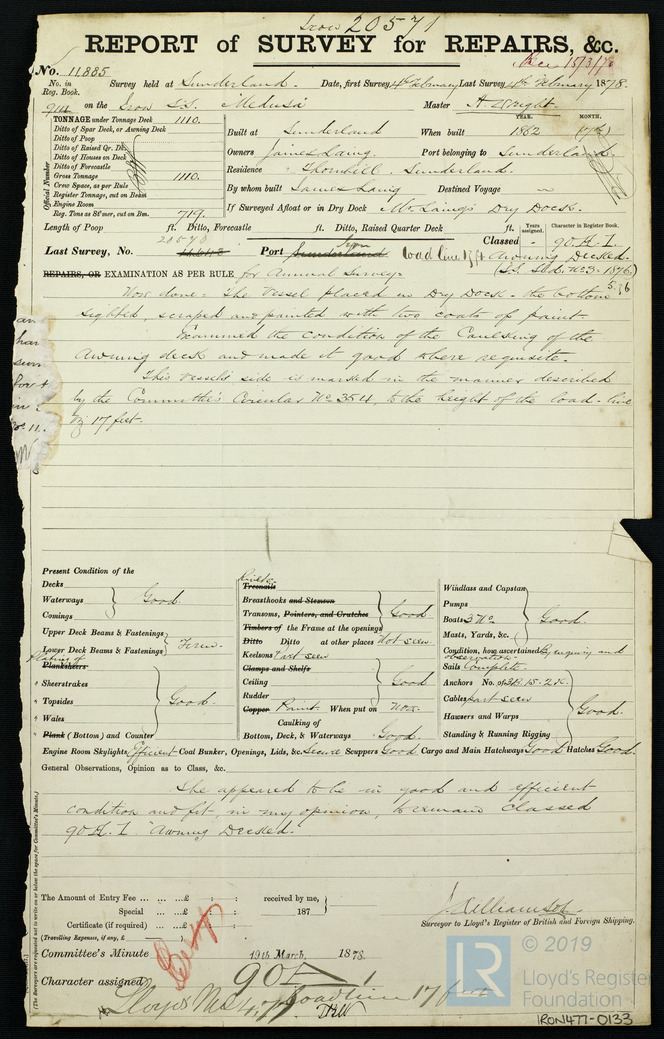 Iron 20571
REPORT of SURVEY for REPAIRS, &c.
No. 11885 Survey held at Sunderland. Date, first Survey 4th February Last Survey 4th February 1878.
No. in Reg. Book.
on the Iron S.S. Medusa Master A. Wright
TONNAGE under Tonnage Deck 1110.
Ditto of Spar Deck, or Awning Deck
Ditto of Poop
Ditto of Raised Qr. Dk.
Ditto of Houses on Deck
Ditto of Forecastle
Gross Tonnage 1110.
Crew Space, as per Rule
Register Tonnage, cut on Beam
Engine Room
Reg. Tons as St'mer, cut on Bm. 719.
Official Number
YEAR. MONTH.
Built at Sunderland When built 1862
Owners James Laing. Port belonging to Sunderland.
Residence Thornhill. Sunderland.
By whom built James Laing Destined Voyage
If Surveyed Afloat or in Dry Dock Mr. Laing's Dry Dock.
Length of Poop ft. Ditto, Forecastle ft. Ditto, Raised Quarter Deck ft. Years assigned. Character in Register Book.
Last Survey, No. Port Sunderland Load line 17 ft Classed 90 A.1. Awning Decked.
REPAIRS, OR EXAMINATION AS PER RULE for Annual Survey.
Now done:- The Vessel placed in Dry Dock - the bottom
sighted, scraped and painted with two coats of paint.
Examined the condition of the Caulking of the
Awning deck and made it good where requisite.
This vessel's side is marked in the manner described
by the Committee's Circular No. 354, to the height of the load-line
viz 17 feet.
Present Condition of the
Decks
Waterways Good.
Comings
Upper Deck Beams & Fastenings
Lower Deck Beams & Fastenings Firm.
Plating of
Plansheers
" Sheerstrakes
" Topsides Good.
" Wales
" Plank (Bottom) and Counter
Rivets
Treenails
Breasthooks and Stemson
Transoms, Pointers, and Crutches Good
Timbers of the Frame at the openings
Ditto Ditto at other places Not seen.
Keelsons Part seen
Clamps and Shelfs
Ceiling Good
Rudder
Copper Paint When put on Now.
Caulking of
Bottom, Deck, & Waterways Good.
Windlass and Capstan
Pumps
Boats 3 No. Good.
Masts, Yards, &c.
Condition, how ascertained By enquiry and
observation.
Sails Complete.
Anchors No. of 3B. 1S. 2K.
Cables part seen
Hawsers and Warps Good.
Standing & Running Rigging
Engine Room Skylights Efficient Coal Bunker, Openings, Lids, &c. Secure Scuppers Good Cargo and Main Hatchways Good Hatches Good.
General Observations, Opinion as to Class, &c.
She appeared to be in good and efficient
condition and fit, in my opinion, to remain classed
90 A.1. "Awning Decked."
The Amount of Entry Fee ... ... ...£ : : received by me,
Special ... ... ...£ : : 187
Certificate (if required) ... ...£ : :
(Travelling Expenses, if any, £ )
J. Williamson
Surveyor to Lloyd's Register of British and Foreign Shipping.
Committee's Minute 19th March, 1878.
Character assigned 90 A 1
Loadline 17 feet
(The Surveyors are requested not to write on or below the space for Committee's Minute.)
LR © 2019
Lloyd's Register
Foundation
IRON477-0133